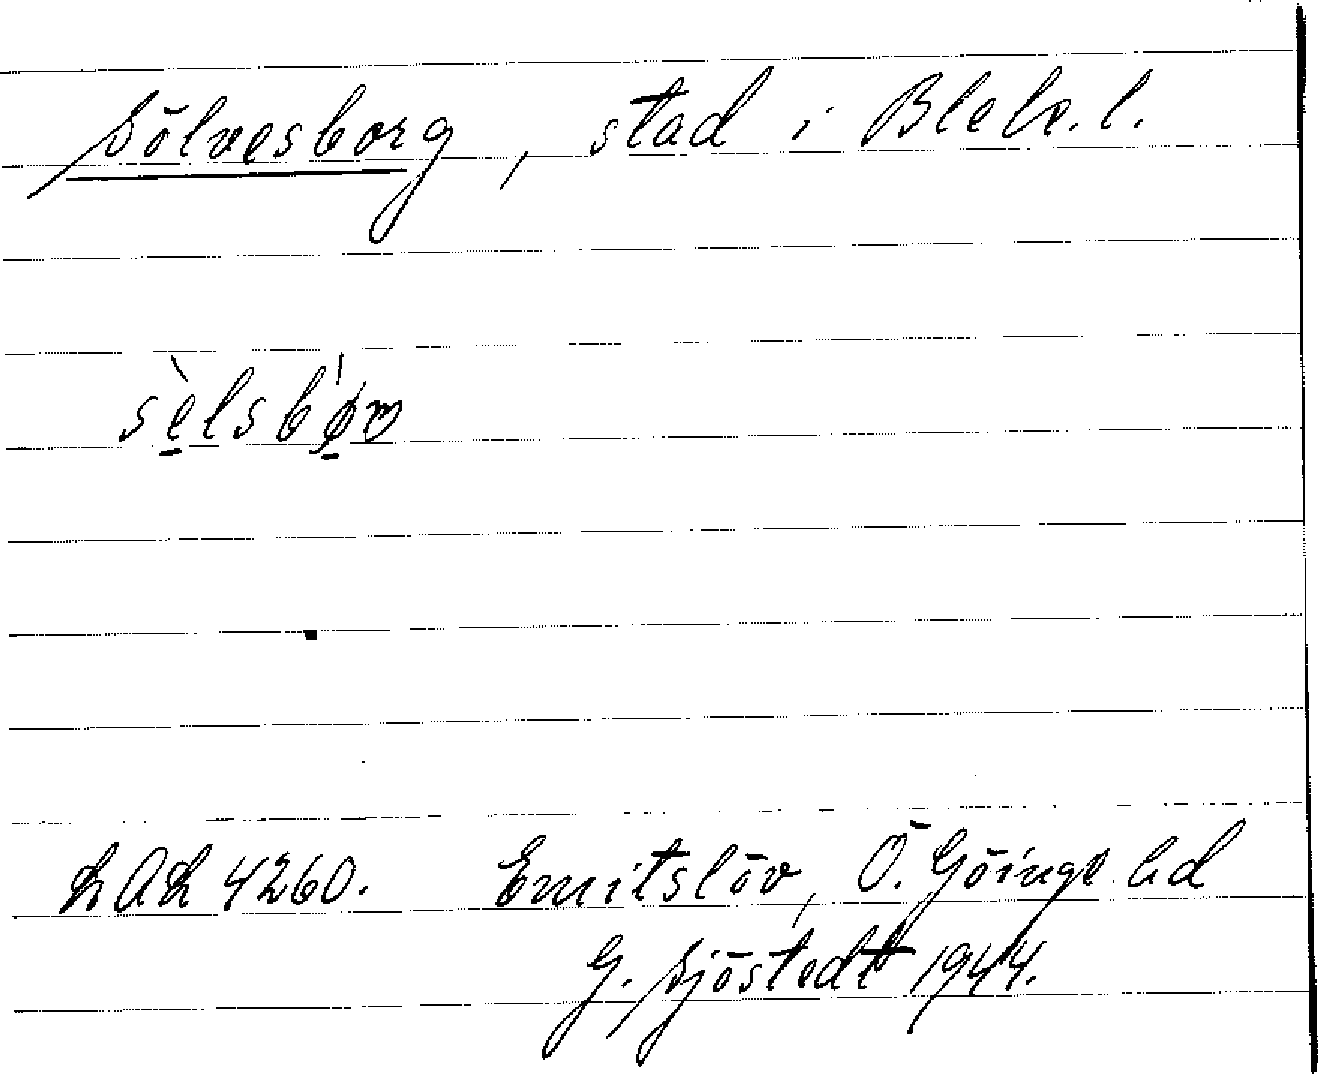 Sölvesborg, stad i Blek. l.
sè̠lsbø̠̍rω
LAL 4260. Emitslöv, Ö. Göinge hd
G. Sjöstedt 1944.